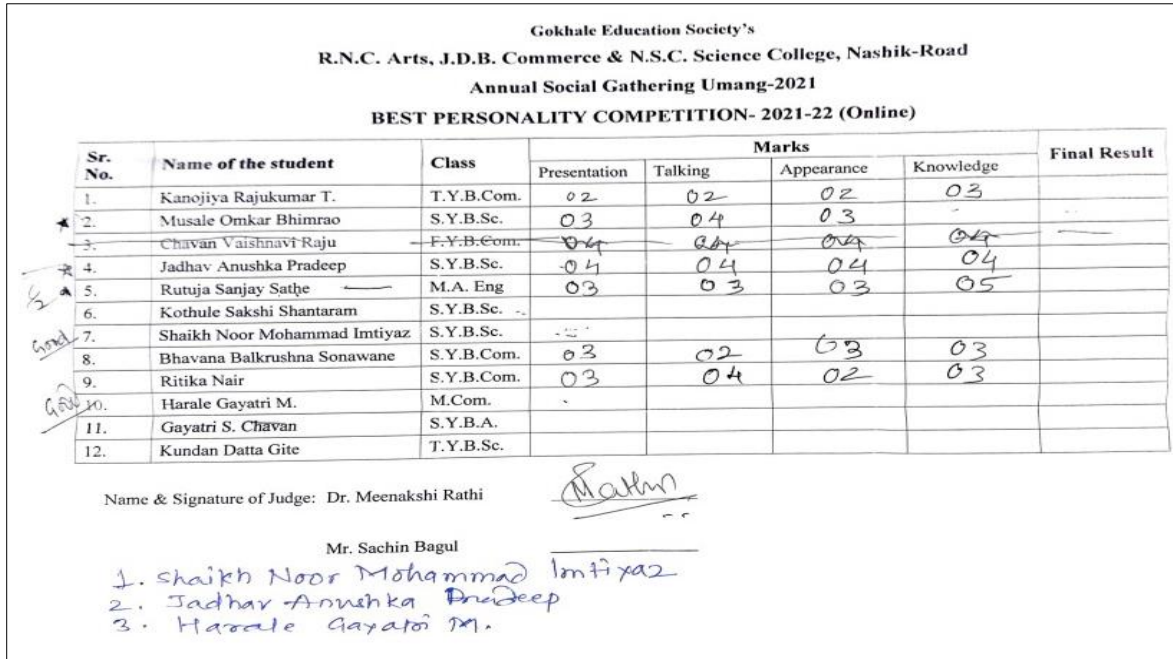 Gokhale Education Society's
R.N.C. Arts, J.D.B. Commerce & N.S.C. Science College, Nashik-Road
Annual Social Gathering Umang-2021
BEST PERSONALITY COMPETITION- 2021-22 (Online)
Sr. No. Name of the student Class Marks Final Result
Presentation Talking Appearance Knowledge
1. Kanojiya Rajukumar T. T.Y.B.Com. 02 02 02 03
2. Musale Omkar Bhimrao S.Y.B.Sc. 03 04 03 -
3. Chavan Vaishnavi Raju F.Y.B.Com. 04 04 04 04
4. Jadhav Anushka Pradeep S.Y.B.Sc. 04 04 04 04
5. Rutuja Sanjay Sathe M.A. Eng 03 03 03 05
6. Kothule Sakshi Shantaram S.Y.B.Sc.
Good 7. Shaikh Noor Mohammad Imtiyaz S.Y.B.Sc.
8. Bhavana Balkrushna Sonawane S.Y.B.Com. 03 02 03 03
9. Ritika Nair S.Y.B.Com. 03 04 02 03
Good 10. Harale Gayatri M. M.Com.
11. Gayatri S. Chavan S.Y.B.A.
12. Kundan Datta Gite T.Y.B.Sc.
Name & Signature of Judge: Dr. Meenakshi Rathi
Mr. Sachin Bagul
1. Shaikh Noor Mohammad Imtiyaz
2. Jadhav Anushka Pradeep
3. Harale Gayatri M.